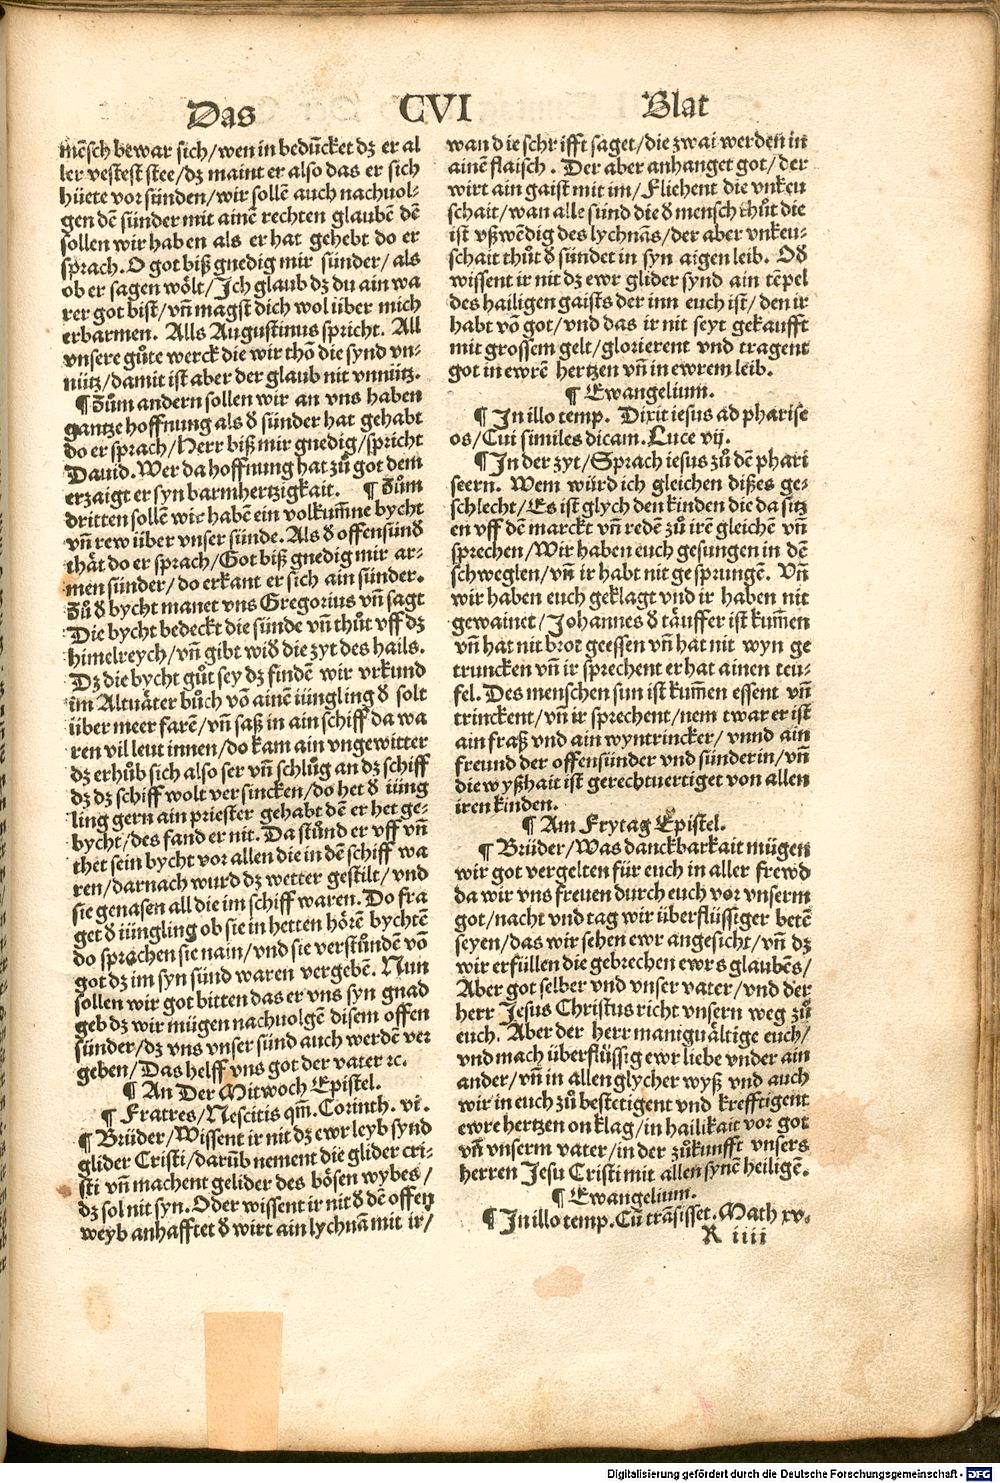 Das CVI Blat
mēsch bewar sich/wen in bedūcket dz er al
ler vestest stee/dz maint er also das er sich
hüete vor sünden/wir sollē auch nachuol-
gen dē sünder mit ainē rechten glaubē dē
sollen wir haben als er hat gehebt do er
sprach. O got biß gnedig mir sünder/als
ob er sagen wölt/Ich glaub dz du ain wa
rer got bist/vñ magst dich wol über mich
erbarmen. Alls Augustinus spricht. All
vnsere gůte werck die wir thō die synd vn-
nütz/damit ist aber der glaub nit vnnütz.
¶ Zům andern sollen wir an vns haben
gantze hoffnung als d sünder hat gehabt
do er sprach/Herr biß mir gnedig/spricht
Dauid. Wer da hoffnung hat zů got dem
erzaigt er syn barmhertzigkait. ¶ Zům
dritten sollē wir habē ein volkum̄ne bycht
vñ rew über vnser sünde. Als d offensünd
thät do er sprach/Got biß gnedig mir ar-
men sünder/do erkant er sich ain sünder.
Zů d bycht manet vns Gregorius vñ sagt
Die bycht bedeckt die sünde vñ thůt vff dz
himelreych/vñ gibt wid die zyt des hails.
Dz die bycht gůt sey dz findē wir vrkund
im Altuäter bůch vō ainē iüngling d solt
über meer farē/vñ saß in ain schiff da wa
ren vil leut innen/do kam ain vngewitter
dz erhůb sich also ser vñ schlůg an dz schiff
dz dz schiff wolt versincken/do het d iüng
ling gern ain priester gehabt dē er het ge-
bycht/des fand er nit. Da stůnd er vff vñ
thet sein bycht vor allen die in dē schiff wa
ren/darnach wurd dz wetter gestilt/vnd
sie genasen all die im schiff waren. Do fra
get d iüngling ob sie in hetten hörē bychtē
do sprachen sie nain/vnd sie verstůndē vō
got dz im syn sünd waren vergebē. Nun
sollen wir got bitten das er vns syn gnad
geb dz wir mügen nachuolgē disem offen
sünder/dz vns vnser sünd auch werdē ver
geben/Das helff vns got der vater ꝛc.
¶ An Der Mitwoch Epistel.
¶ Fratres/Nescitis qm̄. Corinth. vi.
¶ Brüder/Wissent ir nit dz ewr leyb synd
glider Cristi/darūb nement die glider cri-
sti vñ machent gelider des bösen wybes/
dz sol nit syn. Oder wissent ir nit d dē offen
weyb anhafftet d wirt ain lychnā mit ir/
wan die schrifft saget/die zwai werden in
ainē flaisch. Der aber anhanget got/der
wirt ain gaist mit im/Fliehent die vnkeu
schait/wan alle sünd die d mensch thůt die
ist vßwēdig des lychnās/der aber vnkeu-
schait thůt d sündet in syn aigen leib. Od
wissent ir nit dz ewr glider synd ain tēpel
des hailigen gaists der inn euch ist/den ir
habt vō got/vnd das ir nit seyt gekaufft
mit grossem gelt/glorierent vnd tragent
got in ewrē hertzen vñ in ewrem leib.
¶ Ewangelium.
¶ In illo temp. Dixit iesus ad pharise
os/Cui similes dicam. Luce vij.
¶ In der zyt/Sprach iesus zů dē phari
seern. Wem würd ich gleichen dißes ge-
schlecht/Es ist glych den kinden die da sitz
en vff dē marckt vñ redē zů irē gleichē vñ
sprechen/Wir haben euch gesungen in dē
schweglen/vñ ir habt nit gesprungē. Vñ
wir haben euch geklagt vnd ir haben nit
gewainet/Johannes d täuffer ist kum̄en
vñ hat nit brot geessen vñ hat nit wyn ge
truncken vñ ir sprechent er hat ainen teu-
fel. Des menschen sun ist kum̄en essent vñ
trinckent/vñ ir sprechent/nem twar er ist
ain fraß vnd ain wyntrincker/vnnd ain
freund der offensünder vnd sünderin/vñ
die wyßhait ist gerechtuertiget von allen
iren kinden.
¶ Am Frytag Epistel.
¶ Brüder/Was danckbarkait mügen
wir got vergelten für euch in aller frewd
da wir vns freuen durch euch vor vnserm
got/nacht vnd tag wir überflüssiger betē
seyen/das wir sehen ewr angesicht/vñ dz
wir erfüllen die gebrechen ewrs glaubēs/
Aber got selber vnd vnser vater/vnd der
herr Jesus Christus richt vnsern weg zů
euch. Aber der herr maniguältige euch/
vnd mach überflüssig ewr liebe vnder ain
ander/vñ in allen glycher wyß vnd auch
wir in euch zů bestetigent vnd krefftigent
ewre hertzen on klag/in hailikait vor got
vñ vnserm vater/in der zůkunfft vnsers
herren Jesu Cristi mit allen synē heiligē.
¶ Ewangelium.
¶ In illo temp. Cū trāsisset. Math xv.
R iiii
Digitalisierung gefördert durch die Deutsche Forschungsgemeinschaft - DFG